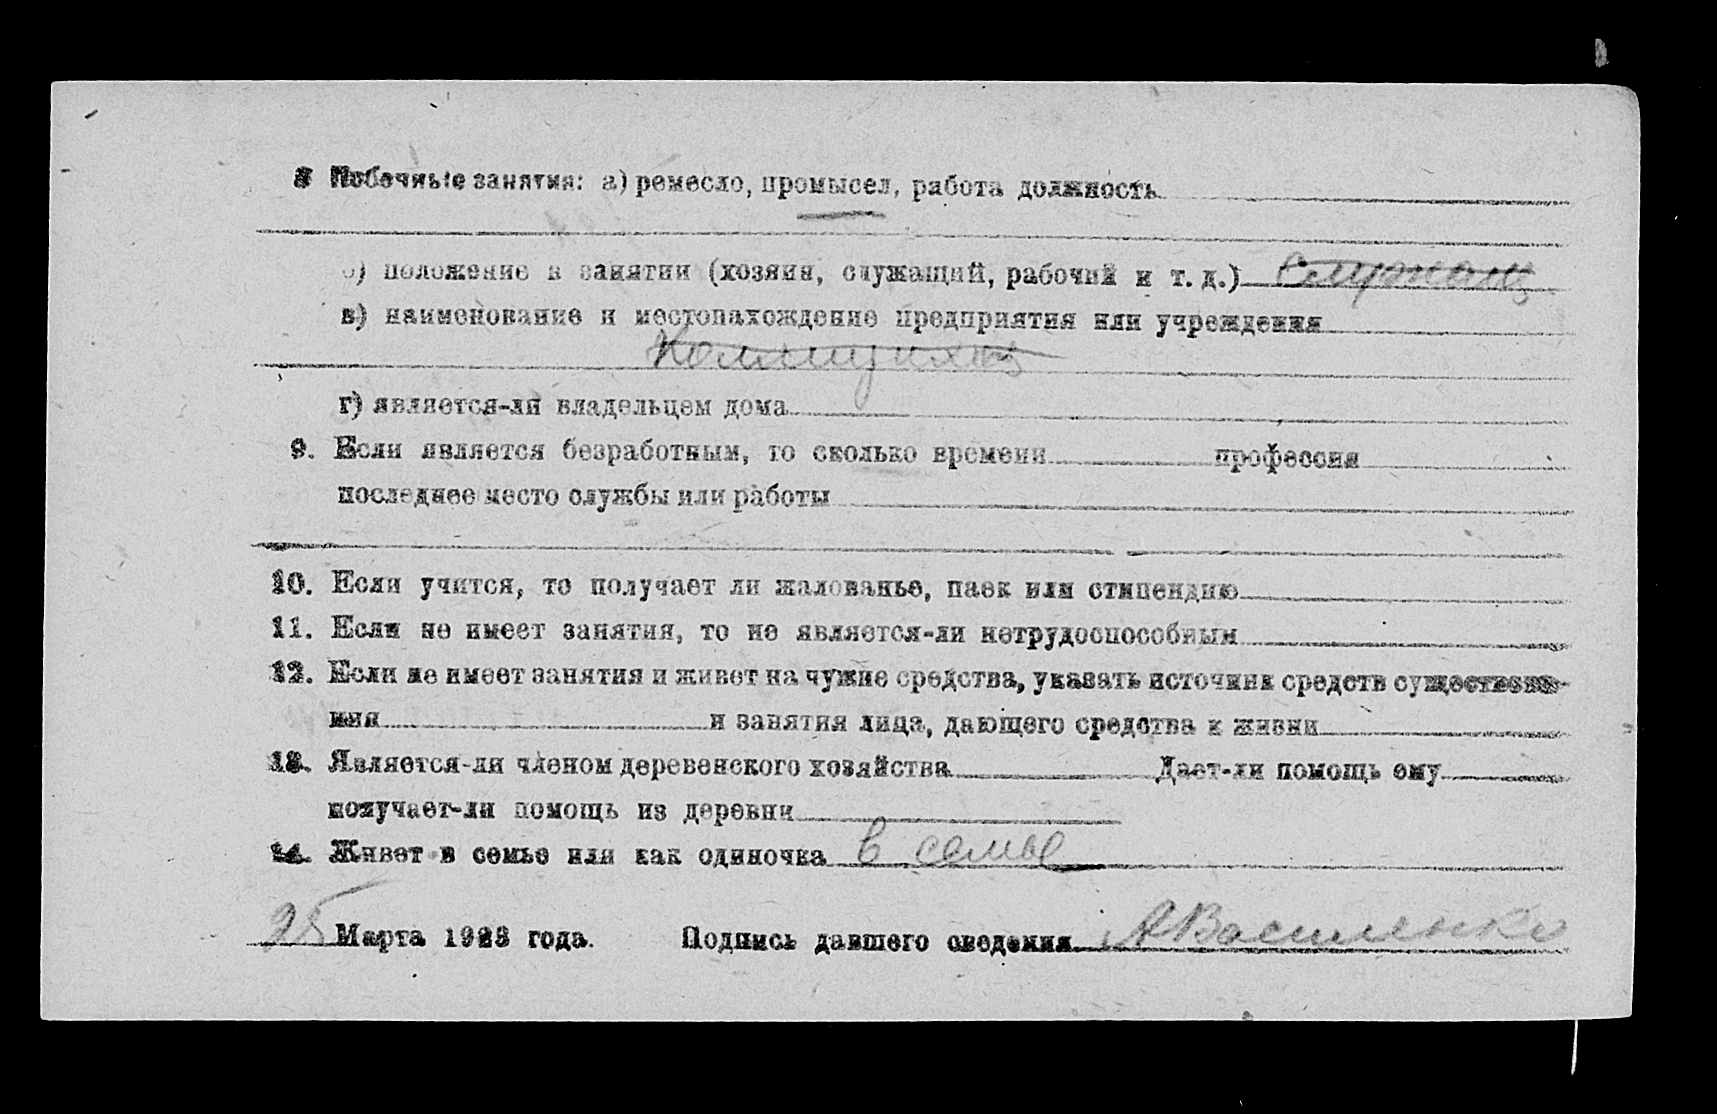 8 Побочные занятия: а) ремесло, промысел, работа должность
б) положение в занятии (хозяин, служащий, рабочий и т. д.) Служащ
в) наименование и местонахождение предприятия или учреждения
г) является-ли владельцем дома
9. Если является безработным, то сколько времени профессия
последнее место службы или работы
10. Если учится, то получает ли жалованье, паек или стипендию
11. Если не имеет занятия, то не является-ли нетрудоспособным
12. Если не имеет занятия и живет на чужие средства, указать источник средств существова-
ния и занятия лица, дающего средства к жизни
13. Является-ли членом деревенского хозяйства Дает-ли помощь ему
получает-ли помощь из деревни
14. Живет в семье или как одиночка в семье
25 Марта 1923 года. Подпись давшего сведения АВасиленко